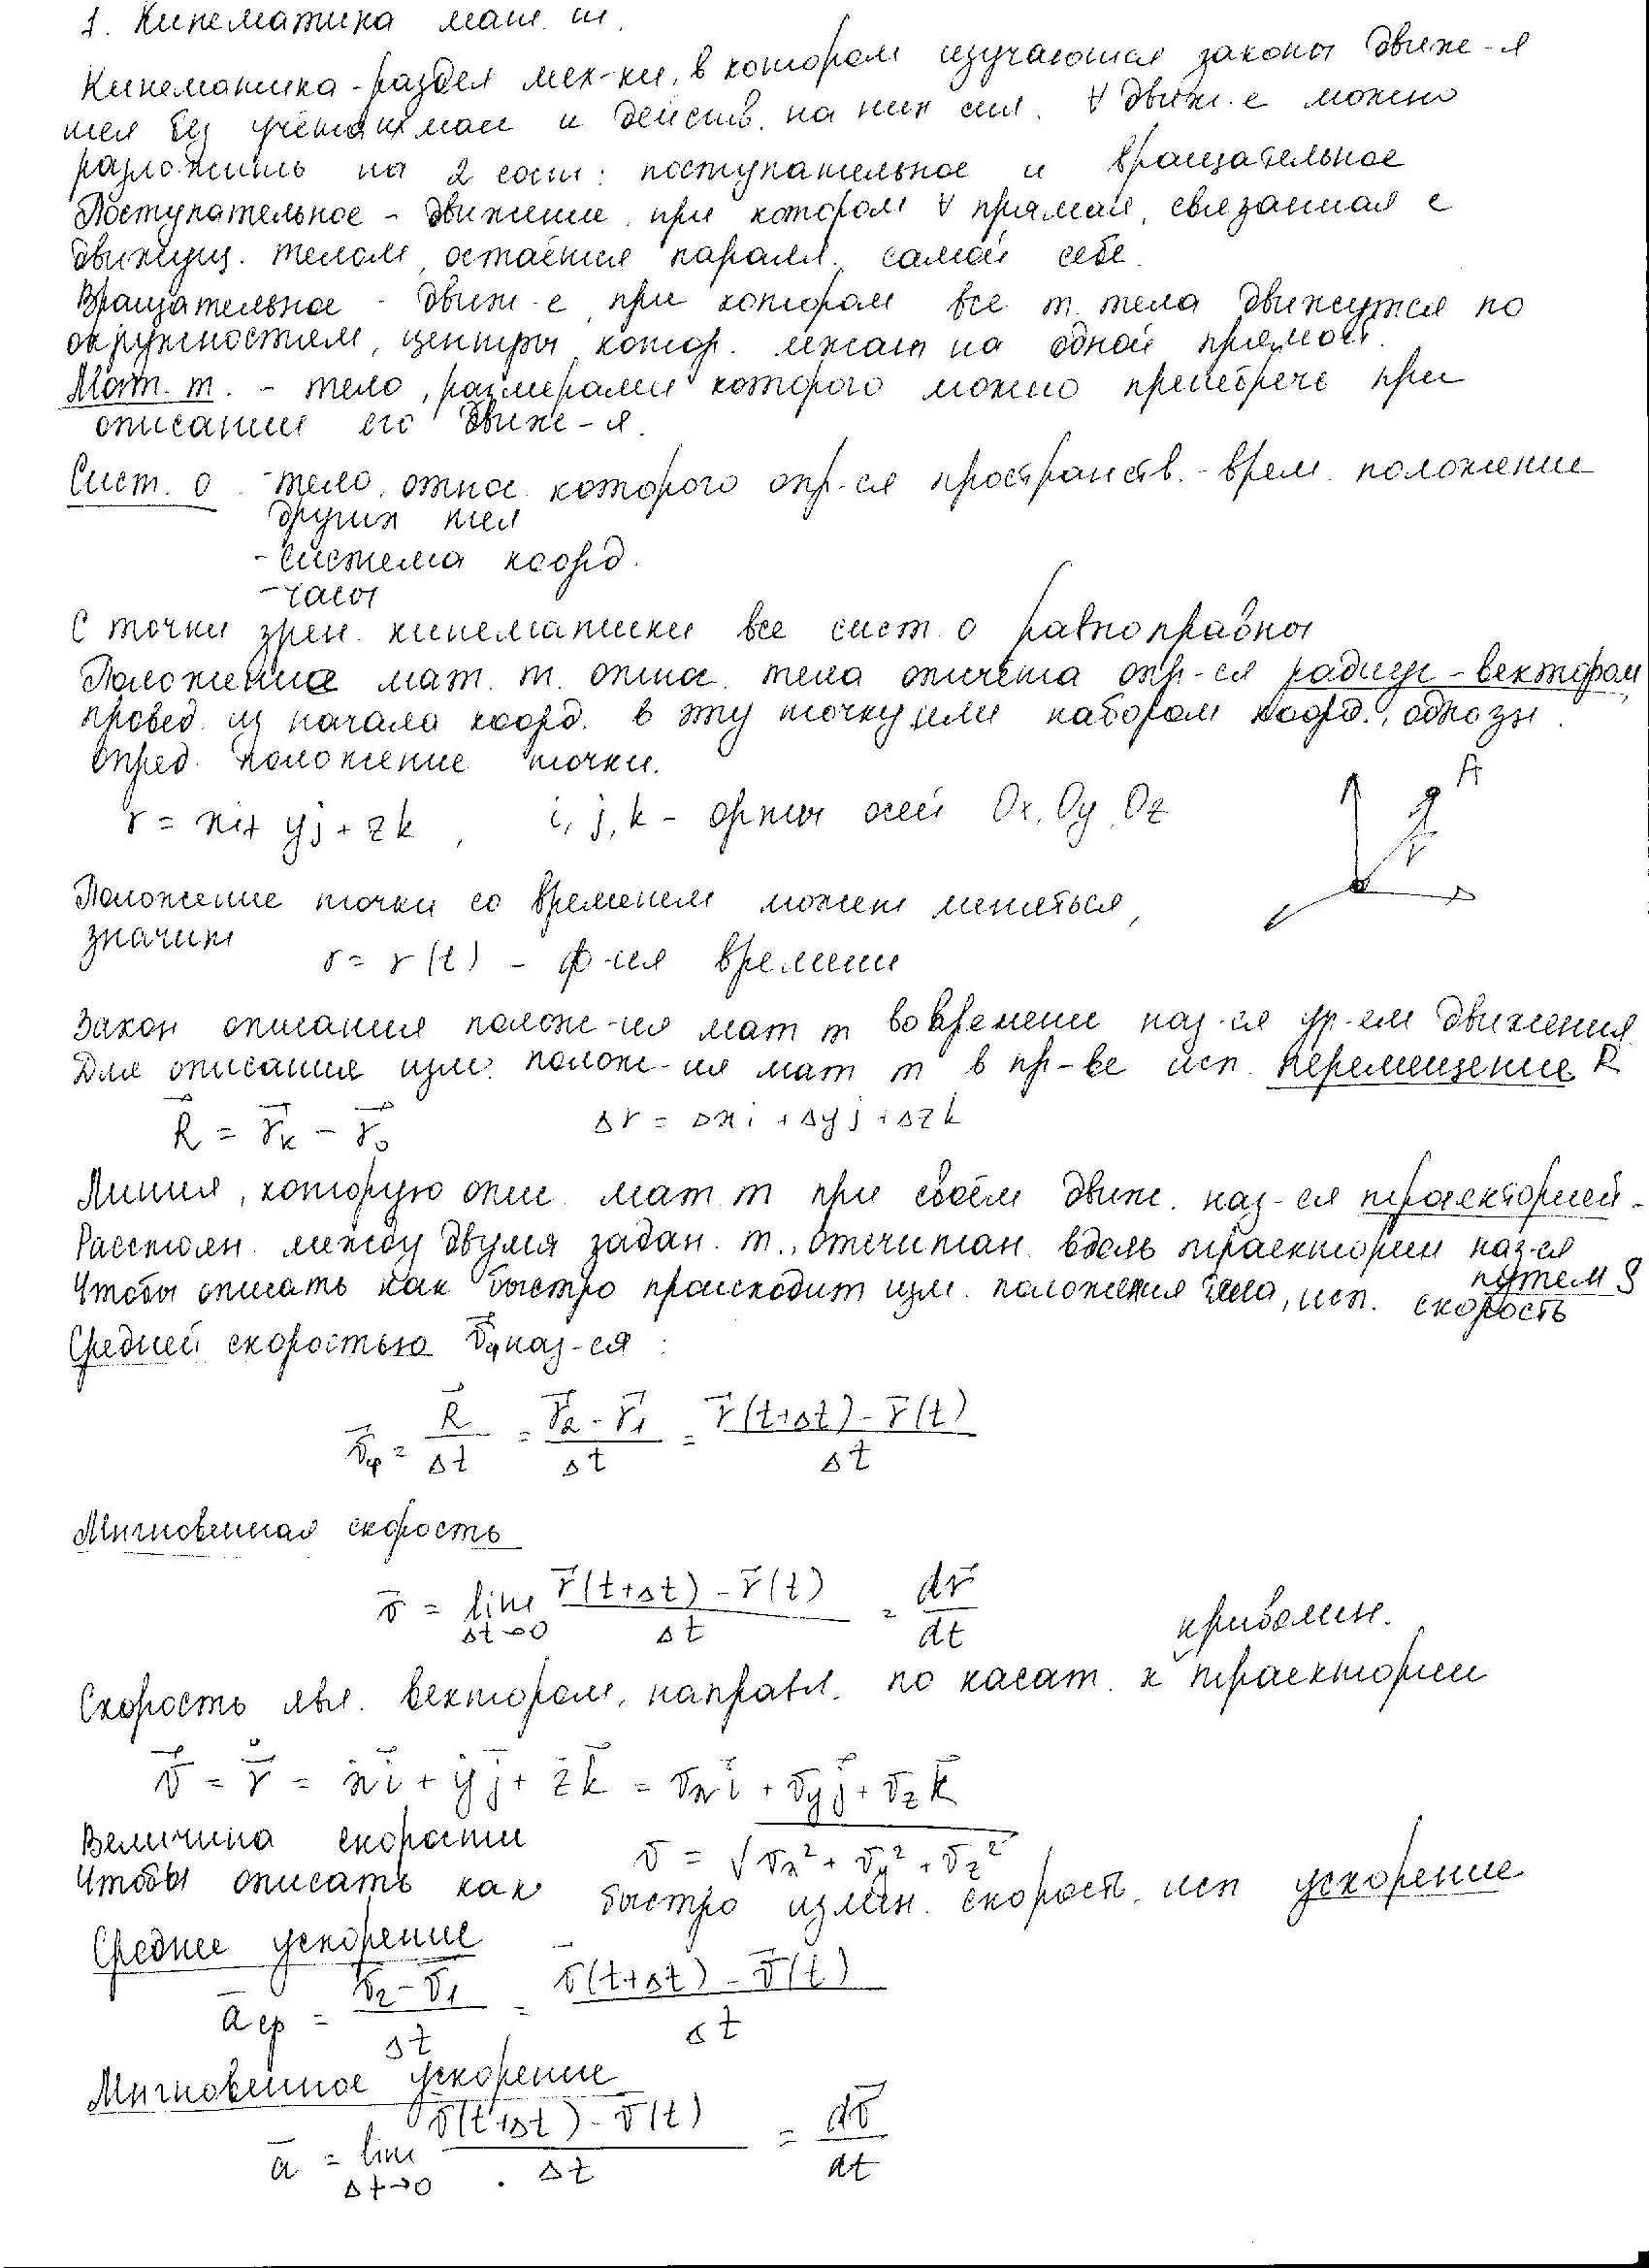 1. Кинематика мат. т.
Кинематика - раздел мех-ки, в котором изучаются законы движе-я
тел без учёта их масс и действ. на них сил. ∀ движ-е можно
разложить на 2 сост: поступательное и вращательное
Поступательное - движение, при котором ∀ прямая, связанная с
движущ. телом, остаётся паралл. самой себе.
Вращательное - движ-е, при котором все т. тела движутся по
окружностям, центры котор. лежат на одной прямой.
Мат. т. - тело, размерами которого можно пренебречь при
описании его движе-я.
Сист. о - тело, относ. которого опр-ся пространств.-врем. положение
других тел
- система коорд.
- часы
С точки зрен. кинематики все сист. о равноправны
Положение мат. т. относ. тела отсчёта опр-ся радиус-вектором
провед. из начала коорд. в эту точку или набором коорд., однозн.
опред. положение точки.
A
r = xi + yj + zk, i, j, k - орты осей Ox, Oy, Oz
r
Положение точки со временем может меняться,
значит
r = r(t) - ф-ия времени
Закон описания полож-ия мат т во времени наз-ся ур-ем движения.
Для описания изм. полож-ия мат т в пр-ве исп. перемещение R
R⃗ = r⃗к - r⃗о Δr = Δxi + Δyj + Δzk
Линия, которую опис. мат т при своём движ. наз-ся траекторией.
Расстоян. между двумя задан. т., отсчитан. вдоль траектории наз-ся
путем S
Чтобы описать как быстро происходит изм. положения тела, исп. скорость
Средней скоростью v⃗ср наз-ся:
v⃗ср = R⃗/Δt = (r⃗2 - r⃗1)/Δt = (r⃗(t+Δt) - r⃗(t))/Δt
Мгновенная скорость
v⃗ = lim Δt→0 (r⃗(t+Δt) - r⃗(t))/Δt = dr⃗/dt
криволин.
Скорость явл. вектором, направл. по касат. к траектории
v⃗ = ṙ⃗ = ẋi⃗ + ẏj⃗ + żk⃗ = vxi⃗ + vyj⃗ + vzk⃗
Величина скорости v = √(vx² + vy² + vz²)
Чтобы описать как быстро измен. скорость, исп ускорение
Среднее ускорение
a⃗ср = (v⃗2 - v⃗1)/Δt = (v⃗(t+Δt) - v⃗(t))/Δt
Мгновенное ускорение
a⃗ = lim Δt→0 (v⃗(t+Δt) - v⃗(t))/Δt = dv⃗/dt